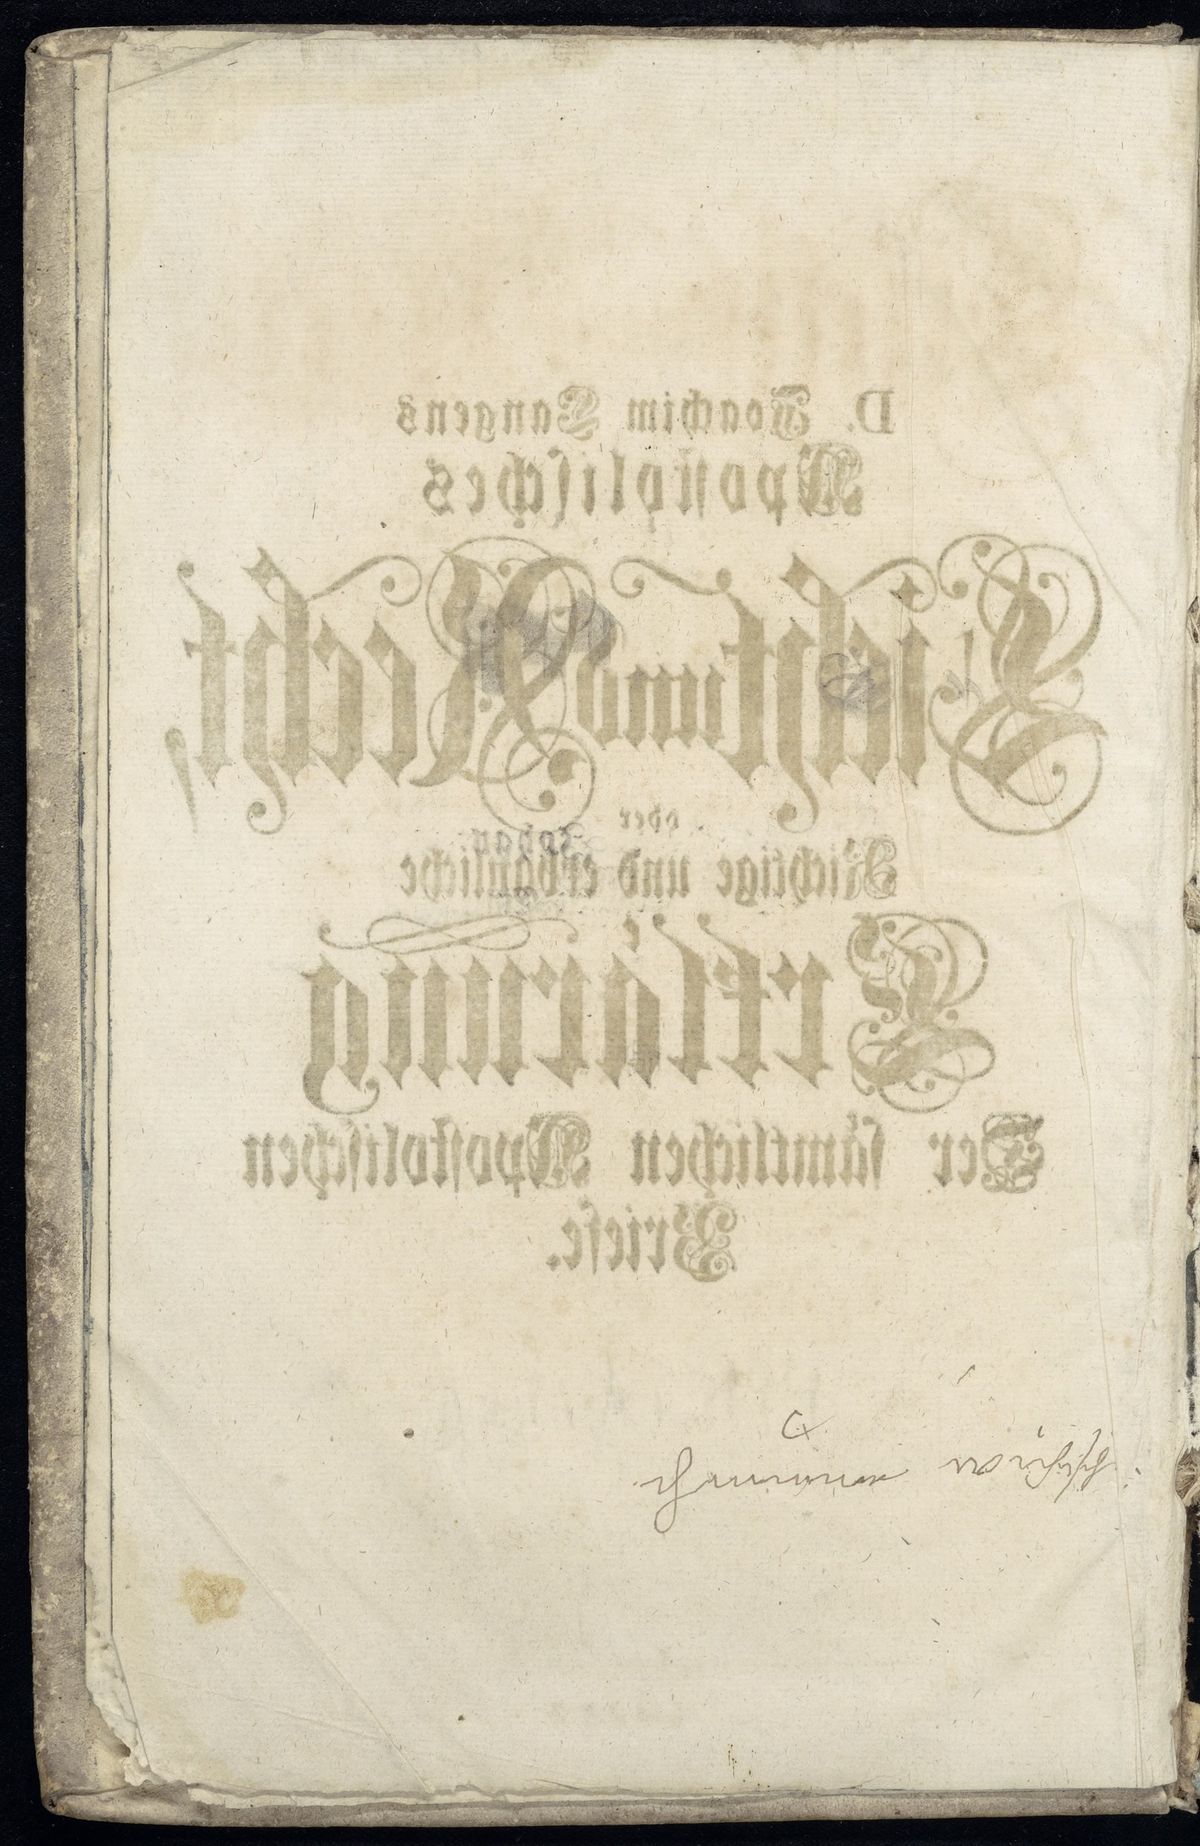 D. Joachim Langens
Apostolisches
Licht und Recht,
oder
Richtige und erbauliche
Erklärung
Der sämtlichen Apostolischen
Briefe.